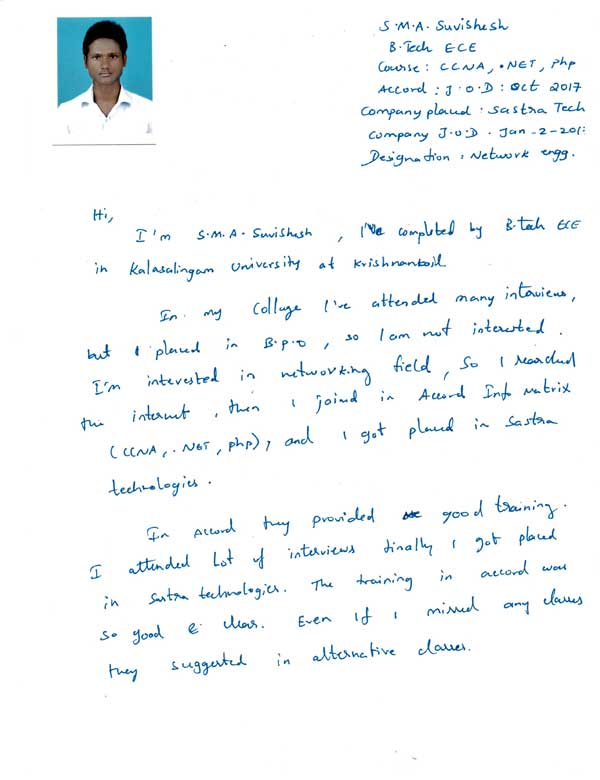 S.M.A. Suvishesh
B.Tech ECE
Course: CCNA, .NET, Php
Accord: J.O.D: Oct 2017
Company placed. Sastra Tech
Company J.O.D. Jan-2-201
Designation: Network engg.
Hi,
I'm S.M.A. Suvishesh, I've completed by B.Tech ECE
in Kalasalingam University at Krishnankoil
In my College I've attended many interviews,
but I placed in B.P.O, so I am not interested.
I'm interested in networking field, So I reached
the internet, then I joined in Accord Info Matrix
(CCNA, .NET, Php), and I got placed in Sastra
technologies.
In Accord they provided good training.
I attended Lot of interviews finally I got placed
in Sastra technologies. The training in accord was
so good & clear. Even if I missed any classes
they suggested in alternative classes.